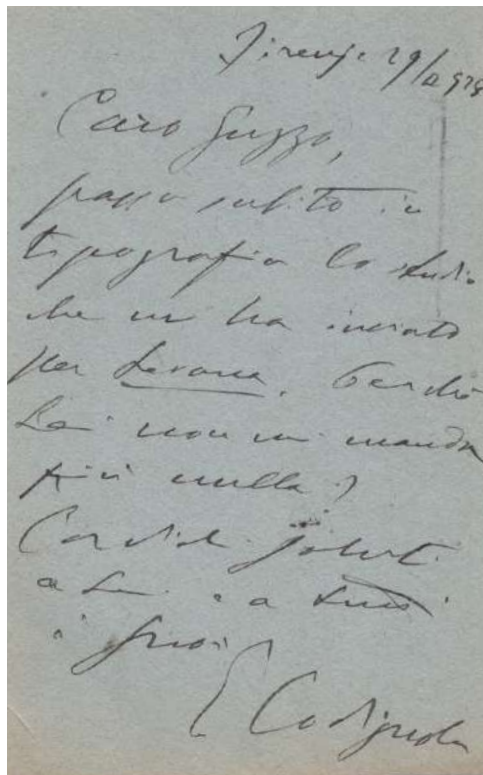 Firenze 29/
Caro Guzzo,
passo subito in
tipografia lo studio
che mi ha inviato
per Levana. Perchè
Lei non mi manda
più nulla?
Cordiali saluti
a Lei e a tutti
i Suoi
E Codignola